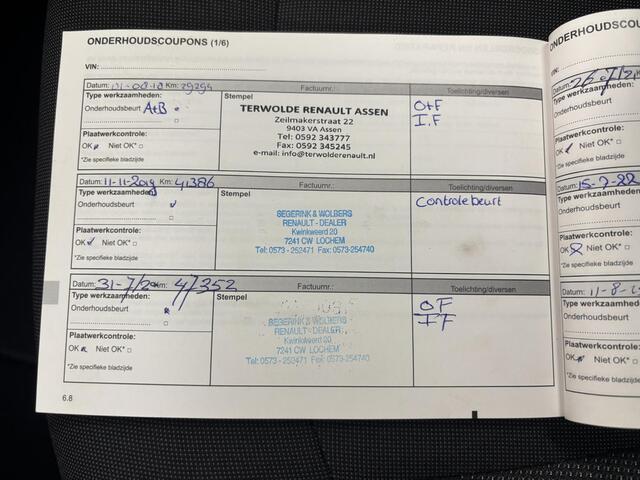 ONDERHOUDSCOUPONS (1/6)
VIN:
Datum: 01-08-18 Km: 29294
Factuurnr.:
Toelichting/diversen
Type werkzaamheden:
Onderhoudsbeurt A+B
Stempel
TERWOLDE RENAULT ASSEN
Zeilmakerstraat 22
9403 VA Assen
Tel: 0592 343777
Fax: 0592 345245
e-mail: info@terwolderenault.nl
O+F
I.F
Plaatwerkcontrole:
OK Niet OK*
*Zie specifieke bladzijde
Datum: 11-11-2019 Km: 41386
Factuurnr.:
Toelichting/diversen
Type werkzaamheden:
Onderhoudsbeurt
Stempel
SEGERINK & WOLBERS
RENAULT - DEALER
Kwinkweerd 20
7241 CW LOCHEM
Tel: 0573-252471 Fax: 0573-254740
Controlebeurt
Plaatwerkcontrole:
OK Niet OK*
*Zie specifieke bladzijde
Datum: 31-7/20 Km: 47352
Factuurnr.:
Toelichting/diversen
Type werkzaamheden:
Onderhoudsbeurt
Stempel
SEGERINK & WOLBERS
RENAULT - DEALER
Kwinkweerd 20
7241 CW LOCHEM
Tel: 0573-252471 Fax: 0573-254740
OF
IF
Plaatwerkcontrole:
OK Niet OK*
*Zie specifieke bladzijde
6.8
ONDERHOUDSCOUPONS
VIN:
Datum: 26-7/21
Type werkzaamheden:
Onderhoudsbeurt
Plaatwerkcontrole:
OK Niet OK*
*Zie specifieke bladzijde
Datum: 15-7-22
Type werkzaamheden:
Onderhoudsbeurt
Plaatwerkcontrole:
OK Niet OK*
*Zie specifieke bladzijde
Datum: 11-8-
Type werkzaamheden:
Onderhoudsbeurt
Plaatwerkcontrole:
OK Niet OK*
*Zie specifieke bladzijde